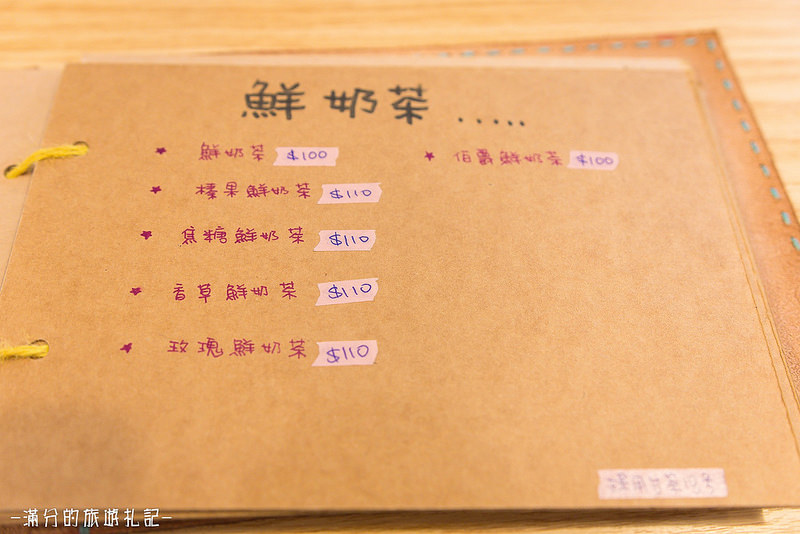 鮮奶茶.....
★ 鮮奶茶 $100
★ 榛果鮮奶茶 $110
★ 焦糖鮮奶茶 $110
★ 香草鮮奶茶 $110
★ 玫瑰鮮奶茶 $110
★ 伯爵鮮奶茶 $100
-滿分的旅遊札記-